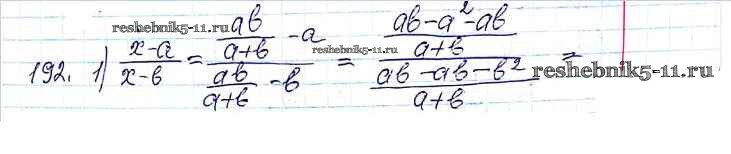 reshebnik5-11.ru
192. 1) \frac{x-a}{x-b} = \frac{\frac{ab}{a+b} - a}{\frac{ab}{a+b} - b} = \frac{\frac{ab-a^2-ab}{a+b}}{\frac{ab-ab-b^2}{a+b}} =
reshebnik5-11.ru
reshebnik5-11.ru